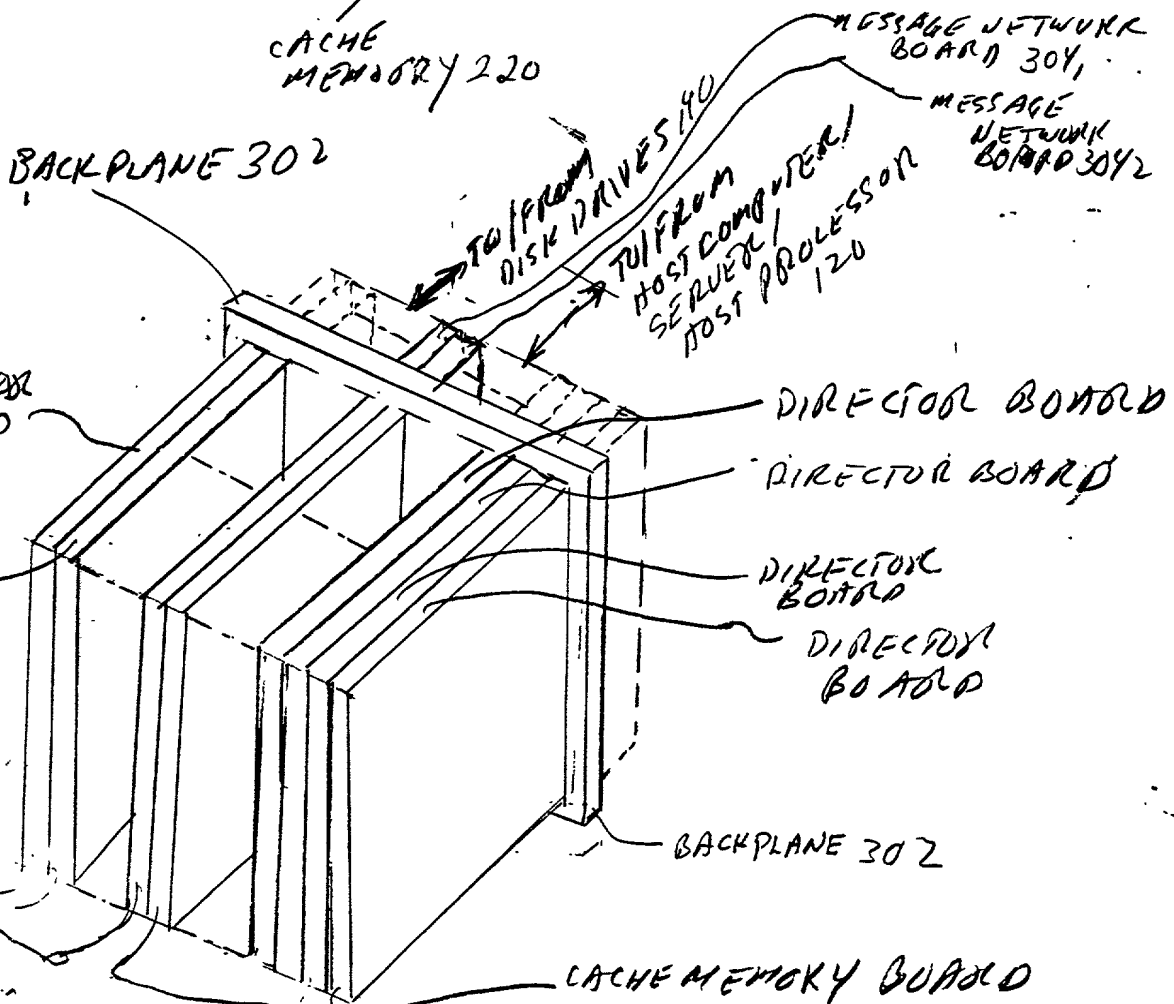 CACHE
MEMORY 220
MESSAGE NETWORK
BOARD 304,
MESSAGE
NETWORK
BOARD 3042
BACKPLANE 302
TO/FROM
DISK DRIVES 140
TO/FROM
HOST COMPUTER/
SERVER/
HOST PROCESSOR
120
DIRECTOR BOARD
DIRECTOR BOARD
DIRECTOR
BOARD
DIRECTOR
BOARD
BACKPLANE 302
CACHE MEMORY BOARD